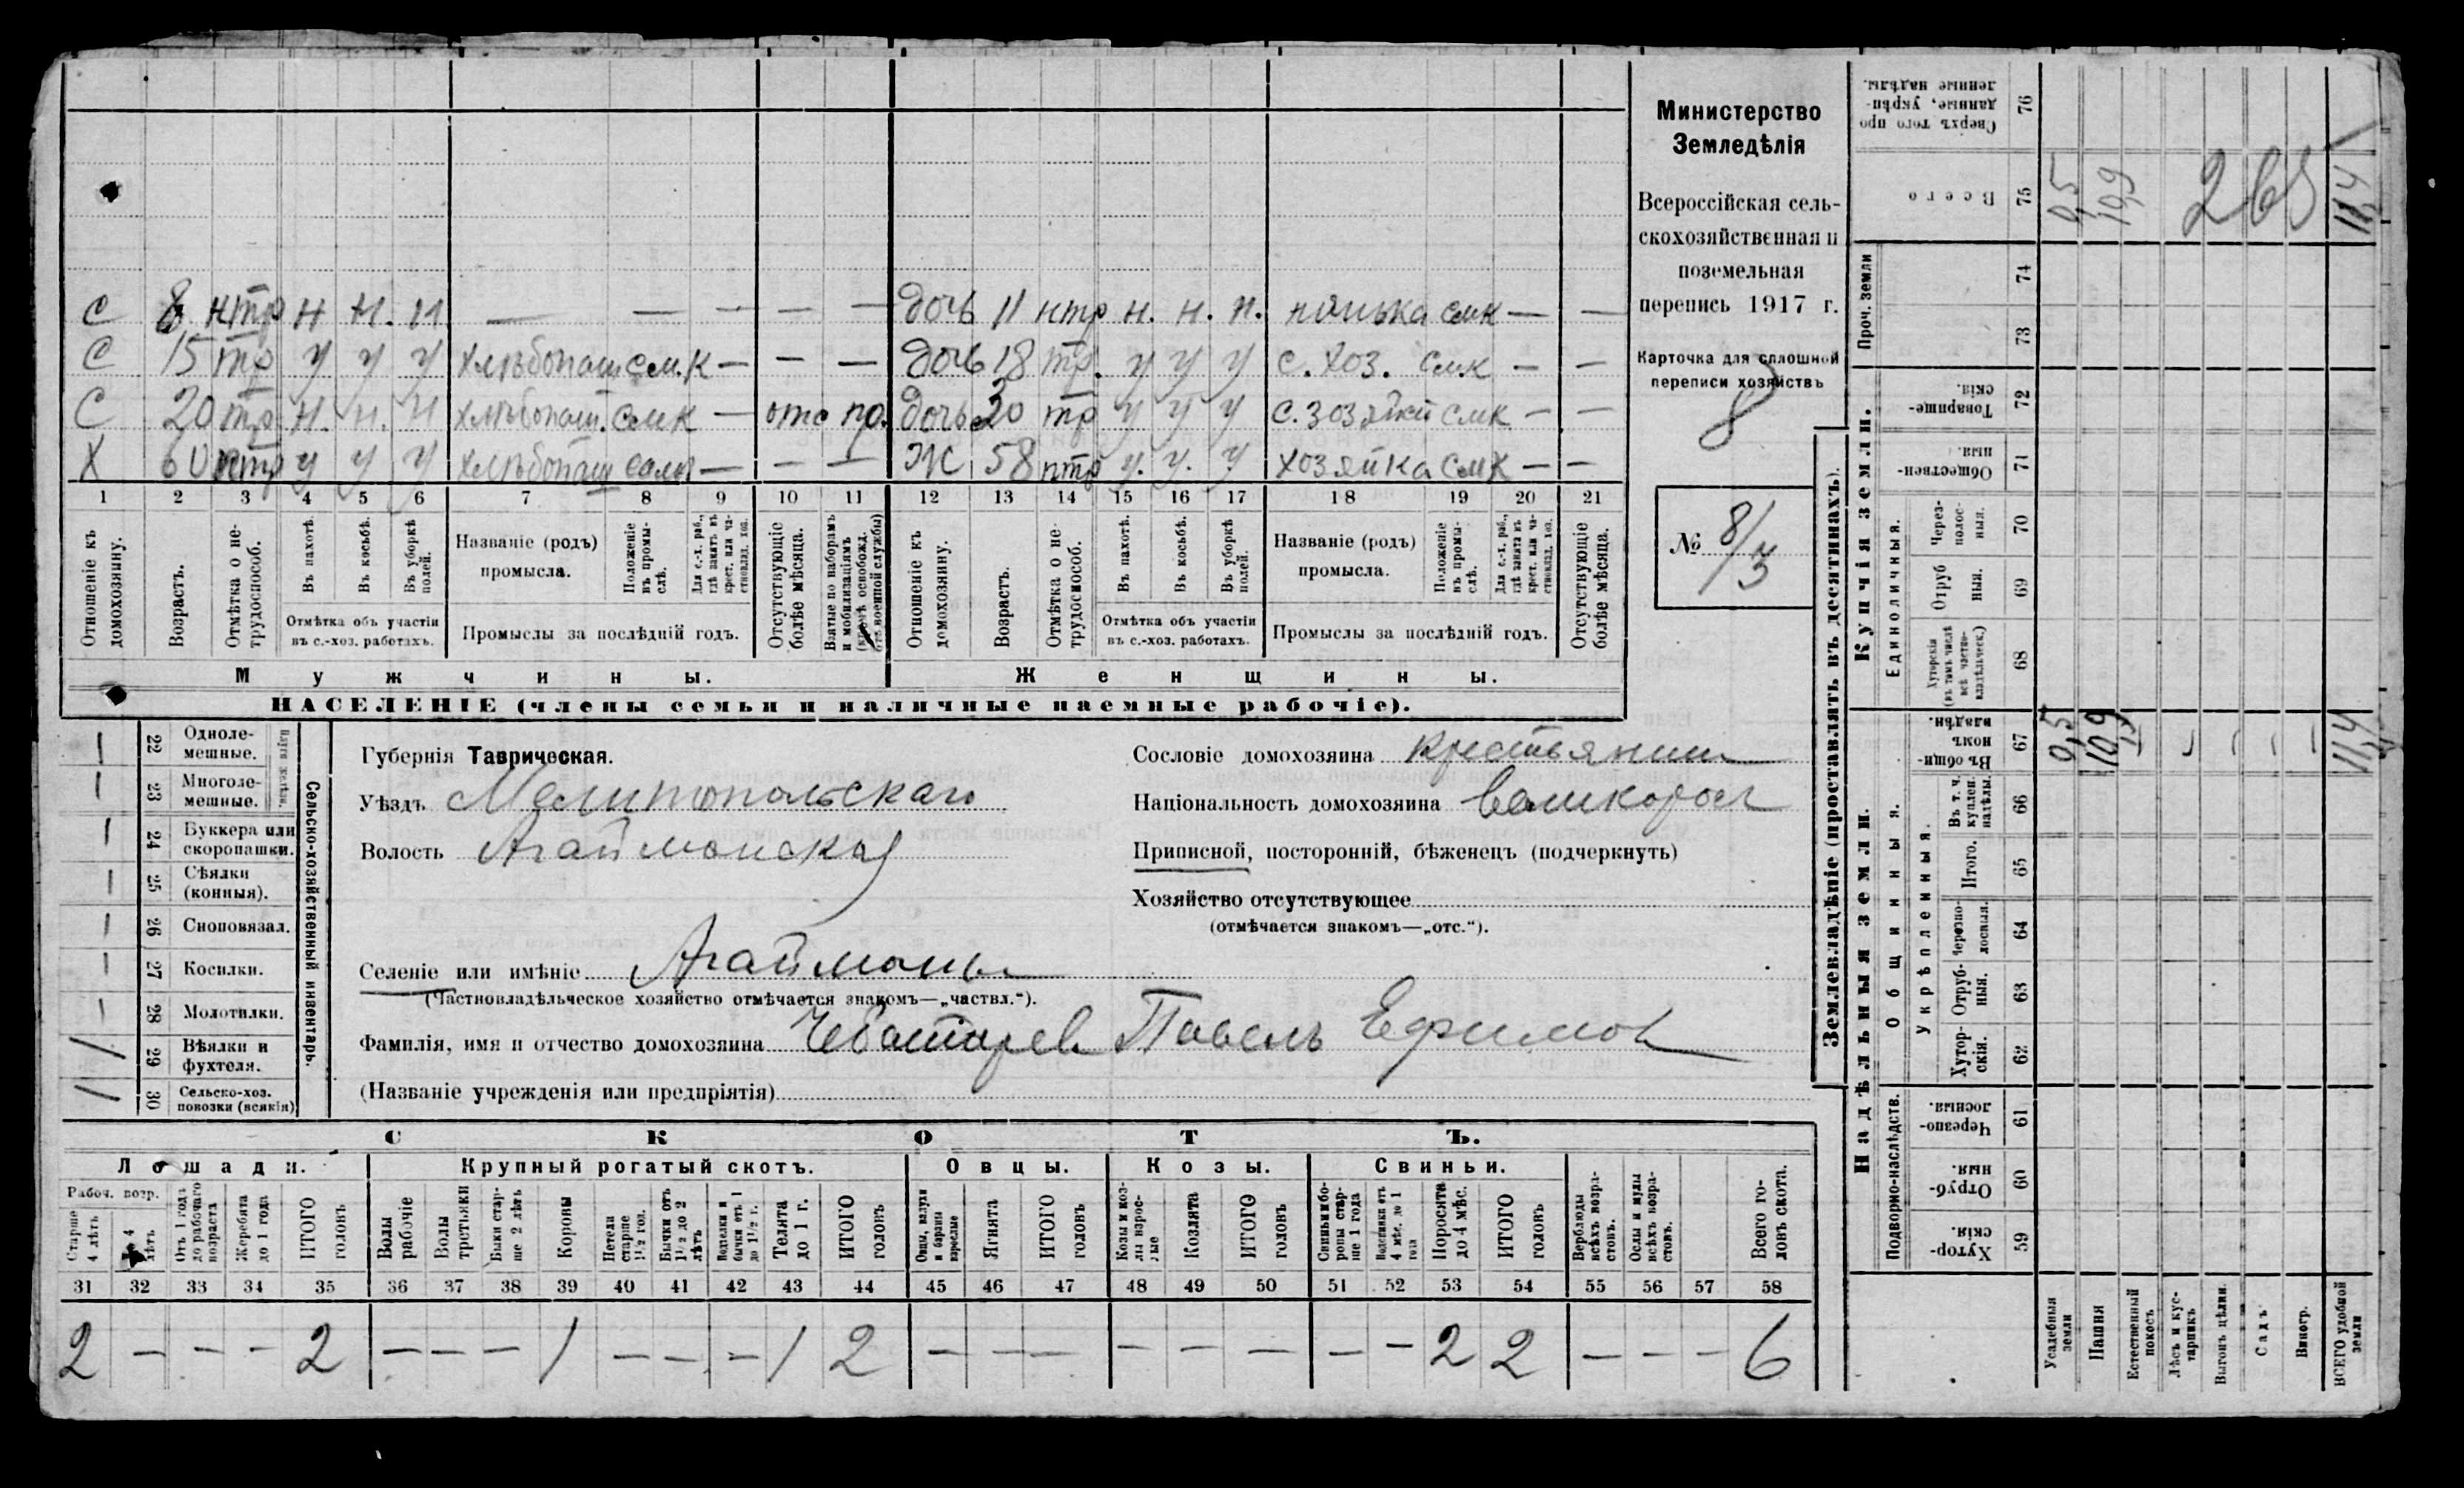 С 8 нтр н н. н — — — — — дочь 11 нтр н. н. н. нянька смк — —
С 15 тр у у у хлѣбопаш смк — — — дочь 18 тр. у у у с. хоз. смк — —
С 20 тр н. н. н хлѣбопаш. смк — отс по. дочь 20 тр у у у с. хозяйст смк — —
Х 60 нтр у у у хлѣбопаш — — — Ж 58 нтр у. у. у хозяйка смк — —
1 2 3 4 5 6 7 8 9 10 11 12 13 14 15 16 17 18 19 20 21
Отношеніе къ домохозяину.
Возрастъ.
Отмѣтка о нетрудоспособ.
Въ пахотѣ.
Въ косьбѣ.
Въ уборкѣ полей.
Отмѣтка объ участіи
въ с.-хоз. работахъ.
Названіе (родъ)
промысла.
Положеніе въ промыслѣ.
Для с.-х. раб., гдѣ занятъ въ крест. или частновлад. хоз.
Промыслы за послѣдній годъ.
Отсутствующіе болѣе мѣсяца.
Взятые по наборамъ и мобилизаціямъ (кромѣ освобожд. отъ военной службы)
Отношеніе къ домохозяину.
Возрастъ.
Отмѣтка о нетрудоспособ.
Въ пахотѣ.
Въ косьбѣ.
Въ уборкѣ полей.
Отмѣтка объ участіи
въ с.-хоз. работахъ.
Названіе (родъ)
промысла.
Положеніе въ промыслѣ.
Для с.-х. раб., гдѣ занята въ крест. или частновлад. хоз.
Промыслы за послѣдній годъ.
Отсутствующіе болѣе мѣсяца.
Мужчины. Женщины.
НАСЕЛЕНІЕ (члены семьи и наличные наемные рабочіе).
Министерство
Земледѣлія
Всероссійская сель-
скохозяйственная и
поземельная
перепись 1917 г.
Карточка для сплошной
переписи хозяйствъ
8
№ 8/3
Сельско-хозяйственный инвентарь.
22 Одноле-
мешные.
23 Многоле-
мешные.
24 Буккера или
скоропашки.
25 Сѣялки
(конныя).
26 Сноповязал.
27 Косилки.
28 Молотилки.
1 29 Вѣялки и
фухтеля.
1 30 Сельско-хоз.
повозки (всякія)
Губернія Таврическая.
Уѣздъ Мелитопольскаго
Волость Агайманская
Селеніе или имѣніе Агайманы
(Частновладѣльческое хозяйство отмѣчается знакомъ—„частвл.“).
Фамилія, имя и отчество домохозяина Чеботарев Павелъ Ефимов
(Названіе учрежденія или предпріятія)
Сословіе домохозяина крестьянин
Національность домохозяина великоросс
Приписной, посторонній, бѣженецъ (подчеркнуть)
Хозяйство отсутствующее
(отмѣчается знакомъ—„отс.“).
СКОТЪ.
Лошади. Крупный рогатый скотъ. Овцы. Козы. Свиньи.
Рабоч. возр.
Старше 4 лѣтъ
До 4 лѣтъ
Отъ 1 года до рабочаго возраста
Жеребята до 1 года
ИТОГО головъ
Волы рабочіе
Волы третьяки
Быки старше 2 лѣтъ
Коровы
Нетели старше 1½ год.
Бычки отъ 1½ до 2 лѣтъ
Телята до 1 г.
ИТОГО головъ
Ягнята
ИТОГО головъ
Козы и козлы взрослые
Козлята
ИТОГО головъ
Свиньи и боровы старше 1 года
Поросята до 4 мѣс.
ИТОГО головъ
Верблюды всѣхъ возрастовъ.
Ослы и мулы всѣхъ возрастовъ.
Всего головъ скота.
31 32 33 34 35 36 37 38 39 40 41 42 43 44 45 46 47 48 49 50 51 52 53 54 55 56 57 58
2 — — — 2 — — — 1 — — — 1 2 — — — — — — — — 2 2 — — — 6
Землевладѣніе (проставлять въ десятинахъ).
Купчія земли.
Надѣльныя земли.
Сверхъ того проданные, укрѣпленные надѣлы. 76
Всего 75 0,5 10,9 265 11,4
Проч. земли 74 73
Товарищескія. 72
Общественныя. 71
Единоличныя.
Черезполосныя. 70
Отрубныя. 69
Хуторскія (въ томъ числѣ всѣ частновладѣльческ.) 68
Общинныя.
Въ общинномъ владѣн. 67 0,5 10,9 11,4
Укрѣпленныя.
Въ т. ч. куплен. надѣлы. 66
Итого. 65
Черезполосныя. 64
Отрубныя. 63
Хуторскія. 62
Подворно-наслѣдств.
Черезполосныя. 61
Отрубныя. 60
Хуторскія. 59
Усадебныя земли
Пашня
Естественный покосъ
Лѣсъ и кустарникъ
Выгонъ цѣлин.
Садъ
Виногр.
ВСЕГО удобной земли